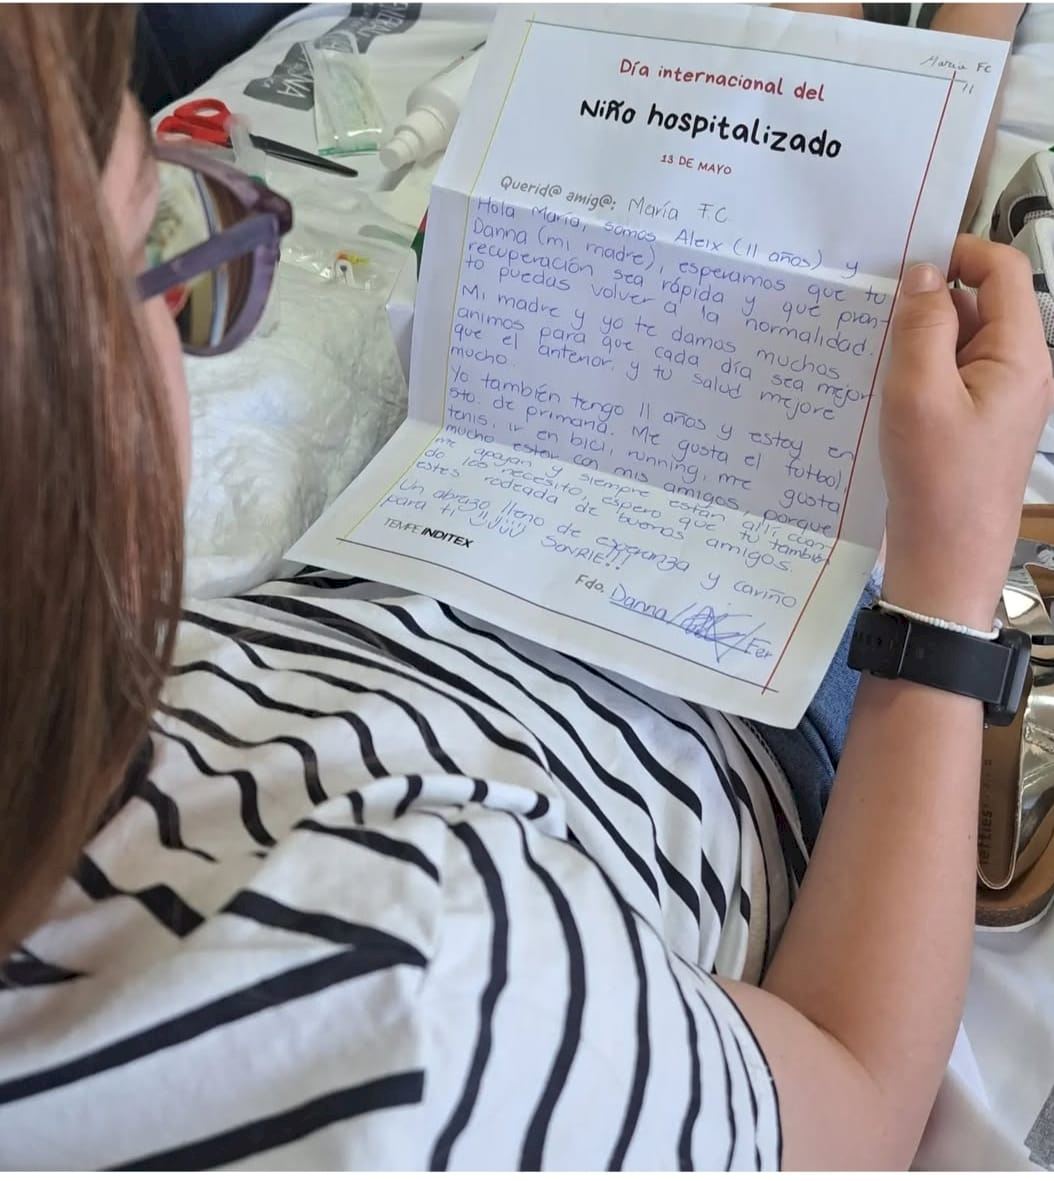 María FC
11
Día internacional del
Niño hospitalizado
13 DE MAYO
Querid@ amig@: María F.C
Hola María, somos Aleix (11 años) y
Danna (mi madre), esperamos que tu
recuperación sea rápida y que pron-
to puedas volver a la normalidad.
Mi madre y yo te damos muchos
animos para que cada día sea mejor
que el anterior, y tu salud mejore
mucho.
Yo también tengo 11 años y estoy en
5to. de primaria. Me gusta el futbol,
tenis, ir en bici, running, me gusta
mucho estar con mis amigos, porque
me apoyan y siempre están allí cuan-
do los necesito, espero que tu también
estes rodeada de buenos amigos.
Un abrazo lleno de esperanza y cariño
para ti SONRIE!!!
TEMPE INDITEX
Fdo. Danna/ /Fer
lefties